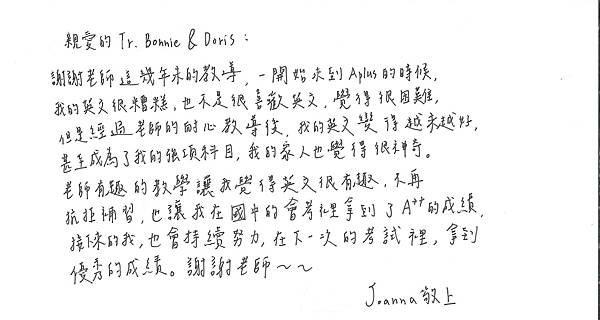 親愛的 Tr. Bonnie & Doris:
謝謝老師這幾年來的教導，一開始來到Aplus的時候，
我的英文很糟糕，也不是很喜歡英文，覺得很困難，
但是經過老師的耐心教導後，我的英文變得越來越好，
甚至成為了我的強項科目，我的家人也覺得很神奇。
老師有趣的教學讓我覺得英文很有趣，不再
抗拒補習，也讓我在國中的會考裡拿到了A++的成績，
接下來的我，也會持續努力，在下一次的考試裡，拿到
優秀的成績。謝謝老師～～
Joanna敬上